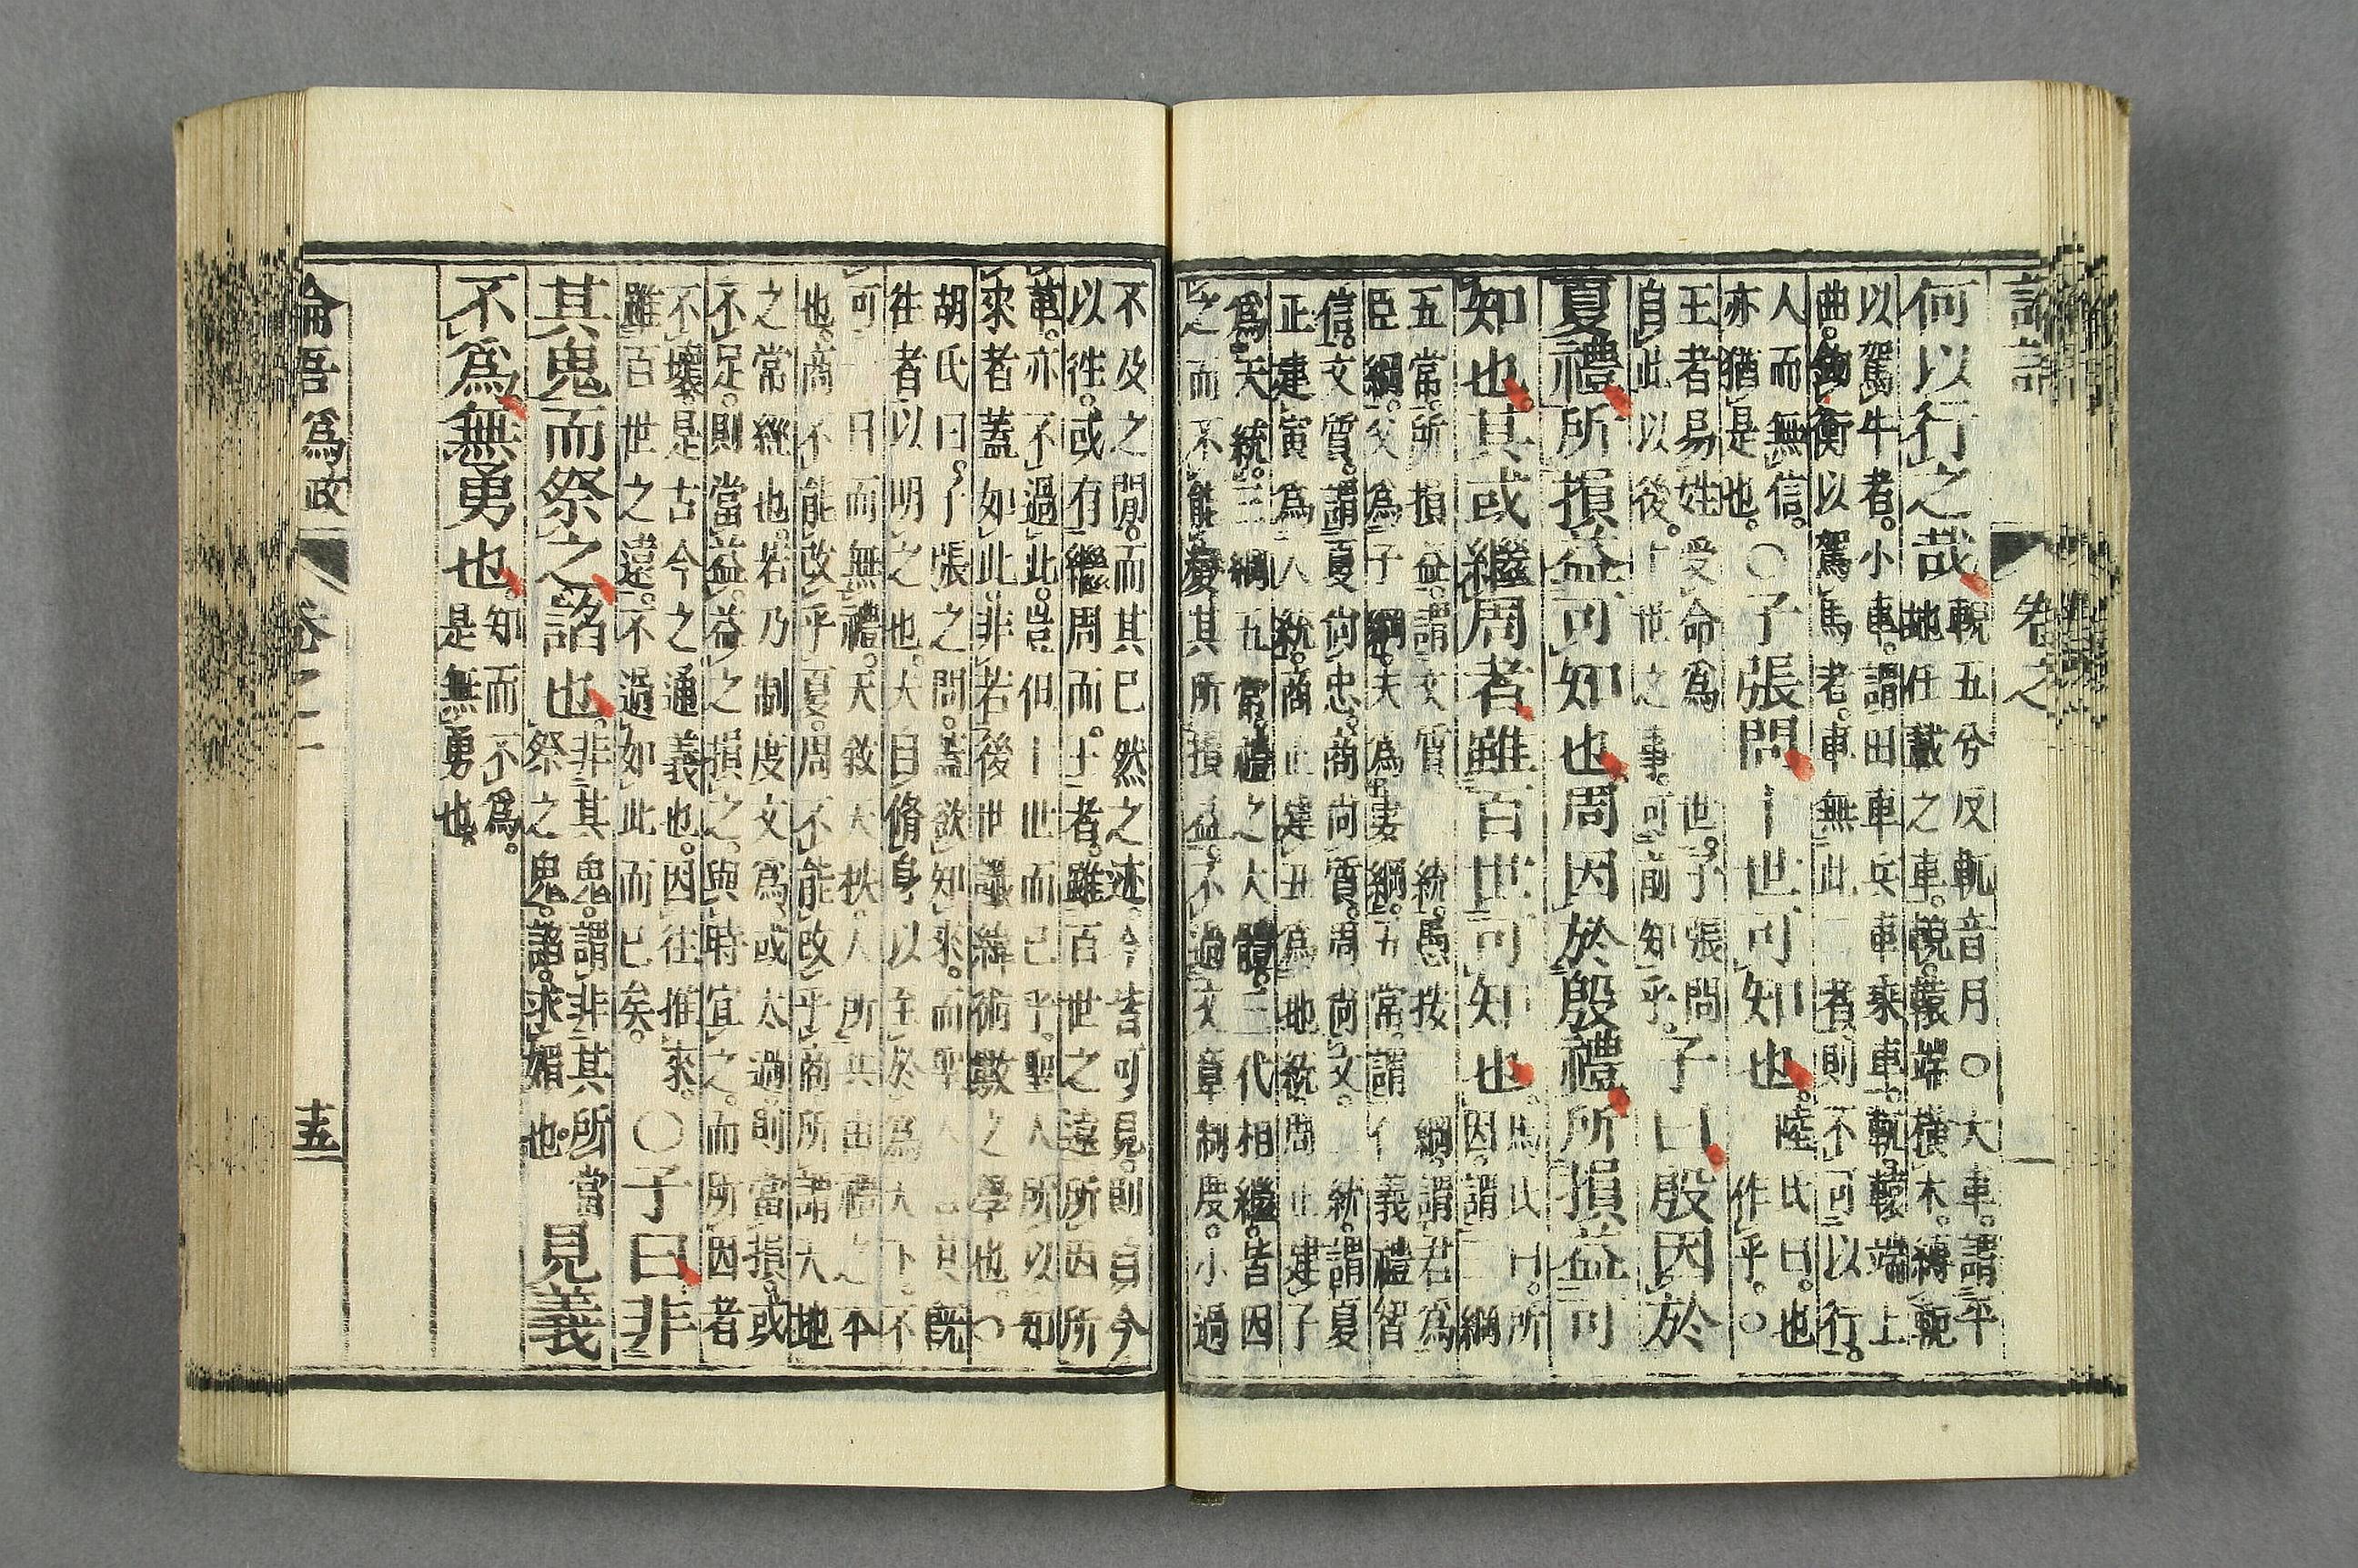 論語 卷之一
何以行之哉輗五兮反軏音月○大車。謂平
地任載之車。輗。轅端橫木。縛軛
以駕牛者。小車。謂田車兵車乘車。軏。轅端上
曲。鉤衡以駕馬者。車無此二者則不可以行。
人而無信。
亦猶是也。○子張問十世可知也陸氏曰。也
一作乎。○
王者易姓受命爲一世。子張問
自此以後。十世之事。可前知乎。子曰殷因於
夏禮所損益可知也周因於殷禮所損益可
知也其或繼周者雖百世可知也馬氏曰。所
因。謂三綱
五常。所損益。謂文質三統。愚按三綱。謂君爲
臣綱。父爲子綱。夫爲妻綱。五常。謂仁義禮智
信。文質。謂夏尚忠。商尚質。周尚文。三統。謂夏
正建寅爲人統。商正建丑爲地統。周正建子
爲天統。三綱五常。禮之大體。三代相繼。皆因
之而不能變其所損益。不過文章制度。小過
不及之間。而其已然之迹。今皆可見。則自今
以往。或有繼周而。王者。雖百世之遠所因所
革。亦不過此。豈但十世而已乎。聖人所以知
來者蓋如此。非若後世讖緯術數之學也。○
胡氏曰。子張之問。蓋欲知來。而聖人言其既
往者以明之也。夫自脩身以至於爲天下。不
可一日而無禮。天敘天秩。人所共由禮之本
也。商不能改乎夏。周不能改乎商。所謂天地
之常經也。若乃制度文爲。或太過。則當損。或
不足。則當益。益之損之。與時宜之。而所因者
不壞。是古今之通義也。因往推來。
雖百世之遠。不過如此而已矣。○子曰非
其鬼而祭之諂也非其鬼。謂非其所當
祭之鬼。諂。求媚也。見義
不爲無勇也知而不爲。
是無勇也。
論語爲政 卷之一 十五